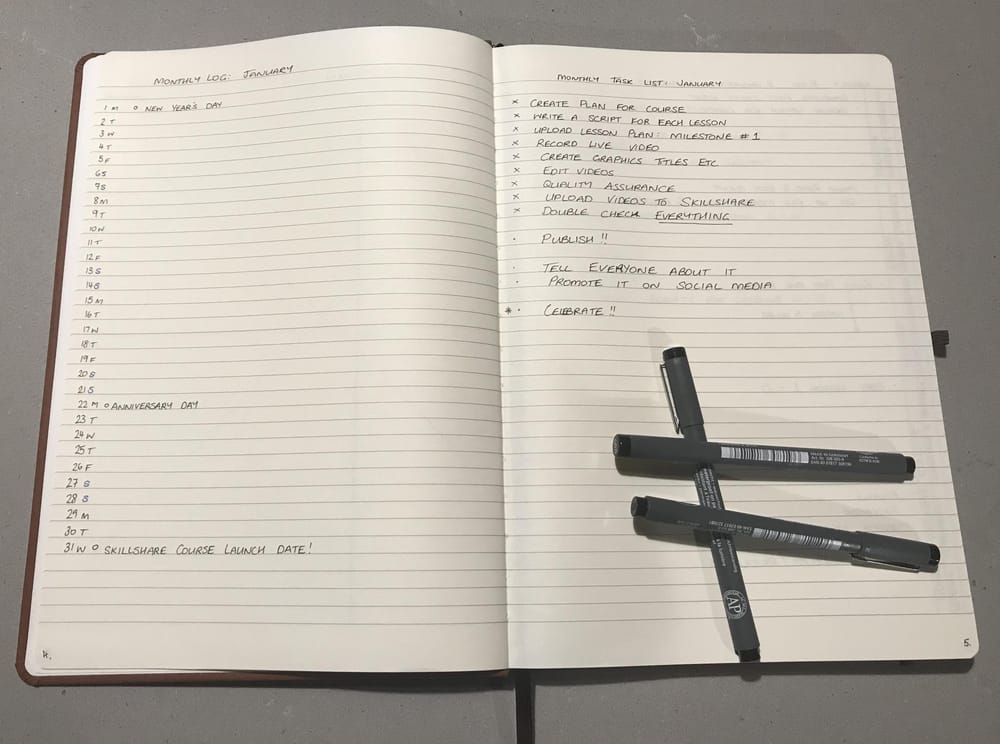 MONTHLY LOG: JANUARY
1 M o NEW YEAR'S DAY
2 T
3 W
4 T
5 F
6 S
7 S
8 M
9 T
10 W
11 T
12 F
13 S
14 S
15 M
16 T
17 W
18 T
19 F
20 S
21 S
22 M o ANNIVERSARY DAY
23 T
24 W
25 T
26 F
27 S
28 S
29 M
30 T
31 W o SKILLSHARE COURSE LAUNCH DATE!
4.
MONTHLY TASK LIST: JANUARY
x CREATE PLAN FOR COURSE
x WRITE A SCRIPT FOR EACH LESSON
x UPLOAD LESSON PLAN: MILESTONE #1
x RECORD LIVE VIDEO
x CREATE GRAPHICS TITLES ETC
x EDIT VIDEOS
x QUALITY ASSURANCE
x UPLOAD VIDEOS TO SKILLSHARE
x DOUBLE CHECK EVERYTHING
· PUBLISH !!
· TELL EVERYONE ABOUT IT
· PROMOTE IT ON SOCIAL MEDIA
* · CELEBRATE !!
MADE IN GERMANY
AP
5.